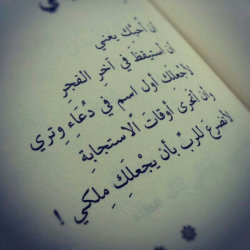 ان أُحِبّك يعني
ان أستيقظ في آخِرِ الفجرِ
لأجعلك أول اسم في دُعَاءِ وِتري
وان أتحرى أوقَات الاستجابةِ
لأتضرعَ للربَّ بأن يجْعلكِ مِلكي !